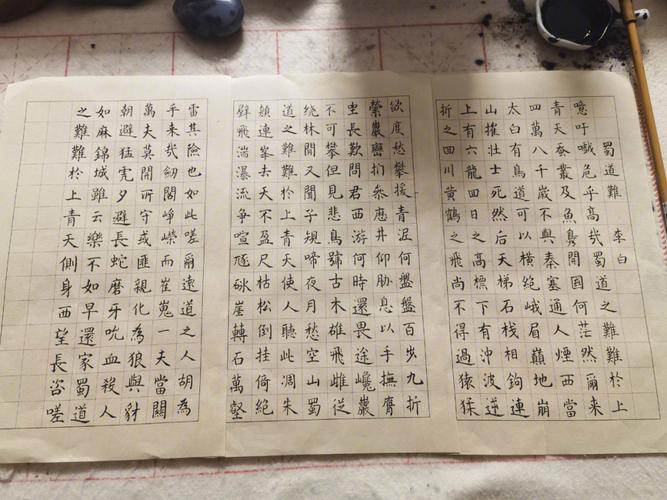 蜀道難 李白
噫吁嚱危乎高哉蜀道之難難於上
青天蚕叢及魚鳧開國何茫然爾来
四萬八千歲不與秦塞通人煙西當
太白有鳥道可以横絶峨眉巔地崩
山摧壮士死然后天梯石栈相鉤連
上有六龍回日之高標下有沖波逆
折之回川黄鶴之飛尚不得過猿猱
欲度愁攀援青泥何盤盤百步九折
縈巖巒捫參歷井仰胁息以手撫膺
坐長歎問君西游何時還畏途巉巖
不可攀但見悲鳥號古木雄飛雌従
绕林間又聞子規啼夜月愁空山蜀
道之難難於上青天使人聽此凋朱
顏連峯去天不盈尺枯松倒挂倚絶
壁飛湍瀑流争喧豗砯崖轉石萬壑
雷其險也如此嗟爾遠道之人胡為
乎来哉劒閣峥嶸而崔嵬一夫當關
萬夫莫開所守或匪親化為狼與豺
朝避猛虎夕避長蛇磨牙吮血殺人
如麻錦城雖云樂不如早還家蜀道
之難難於上青天側身西望長咨嗟